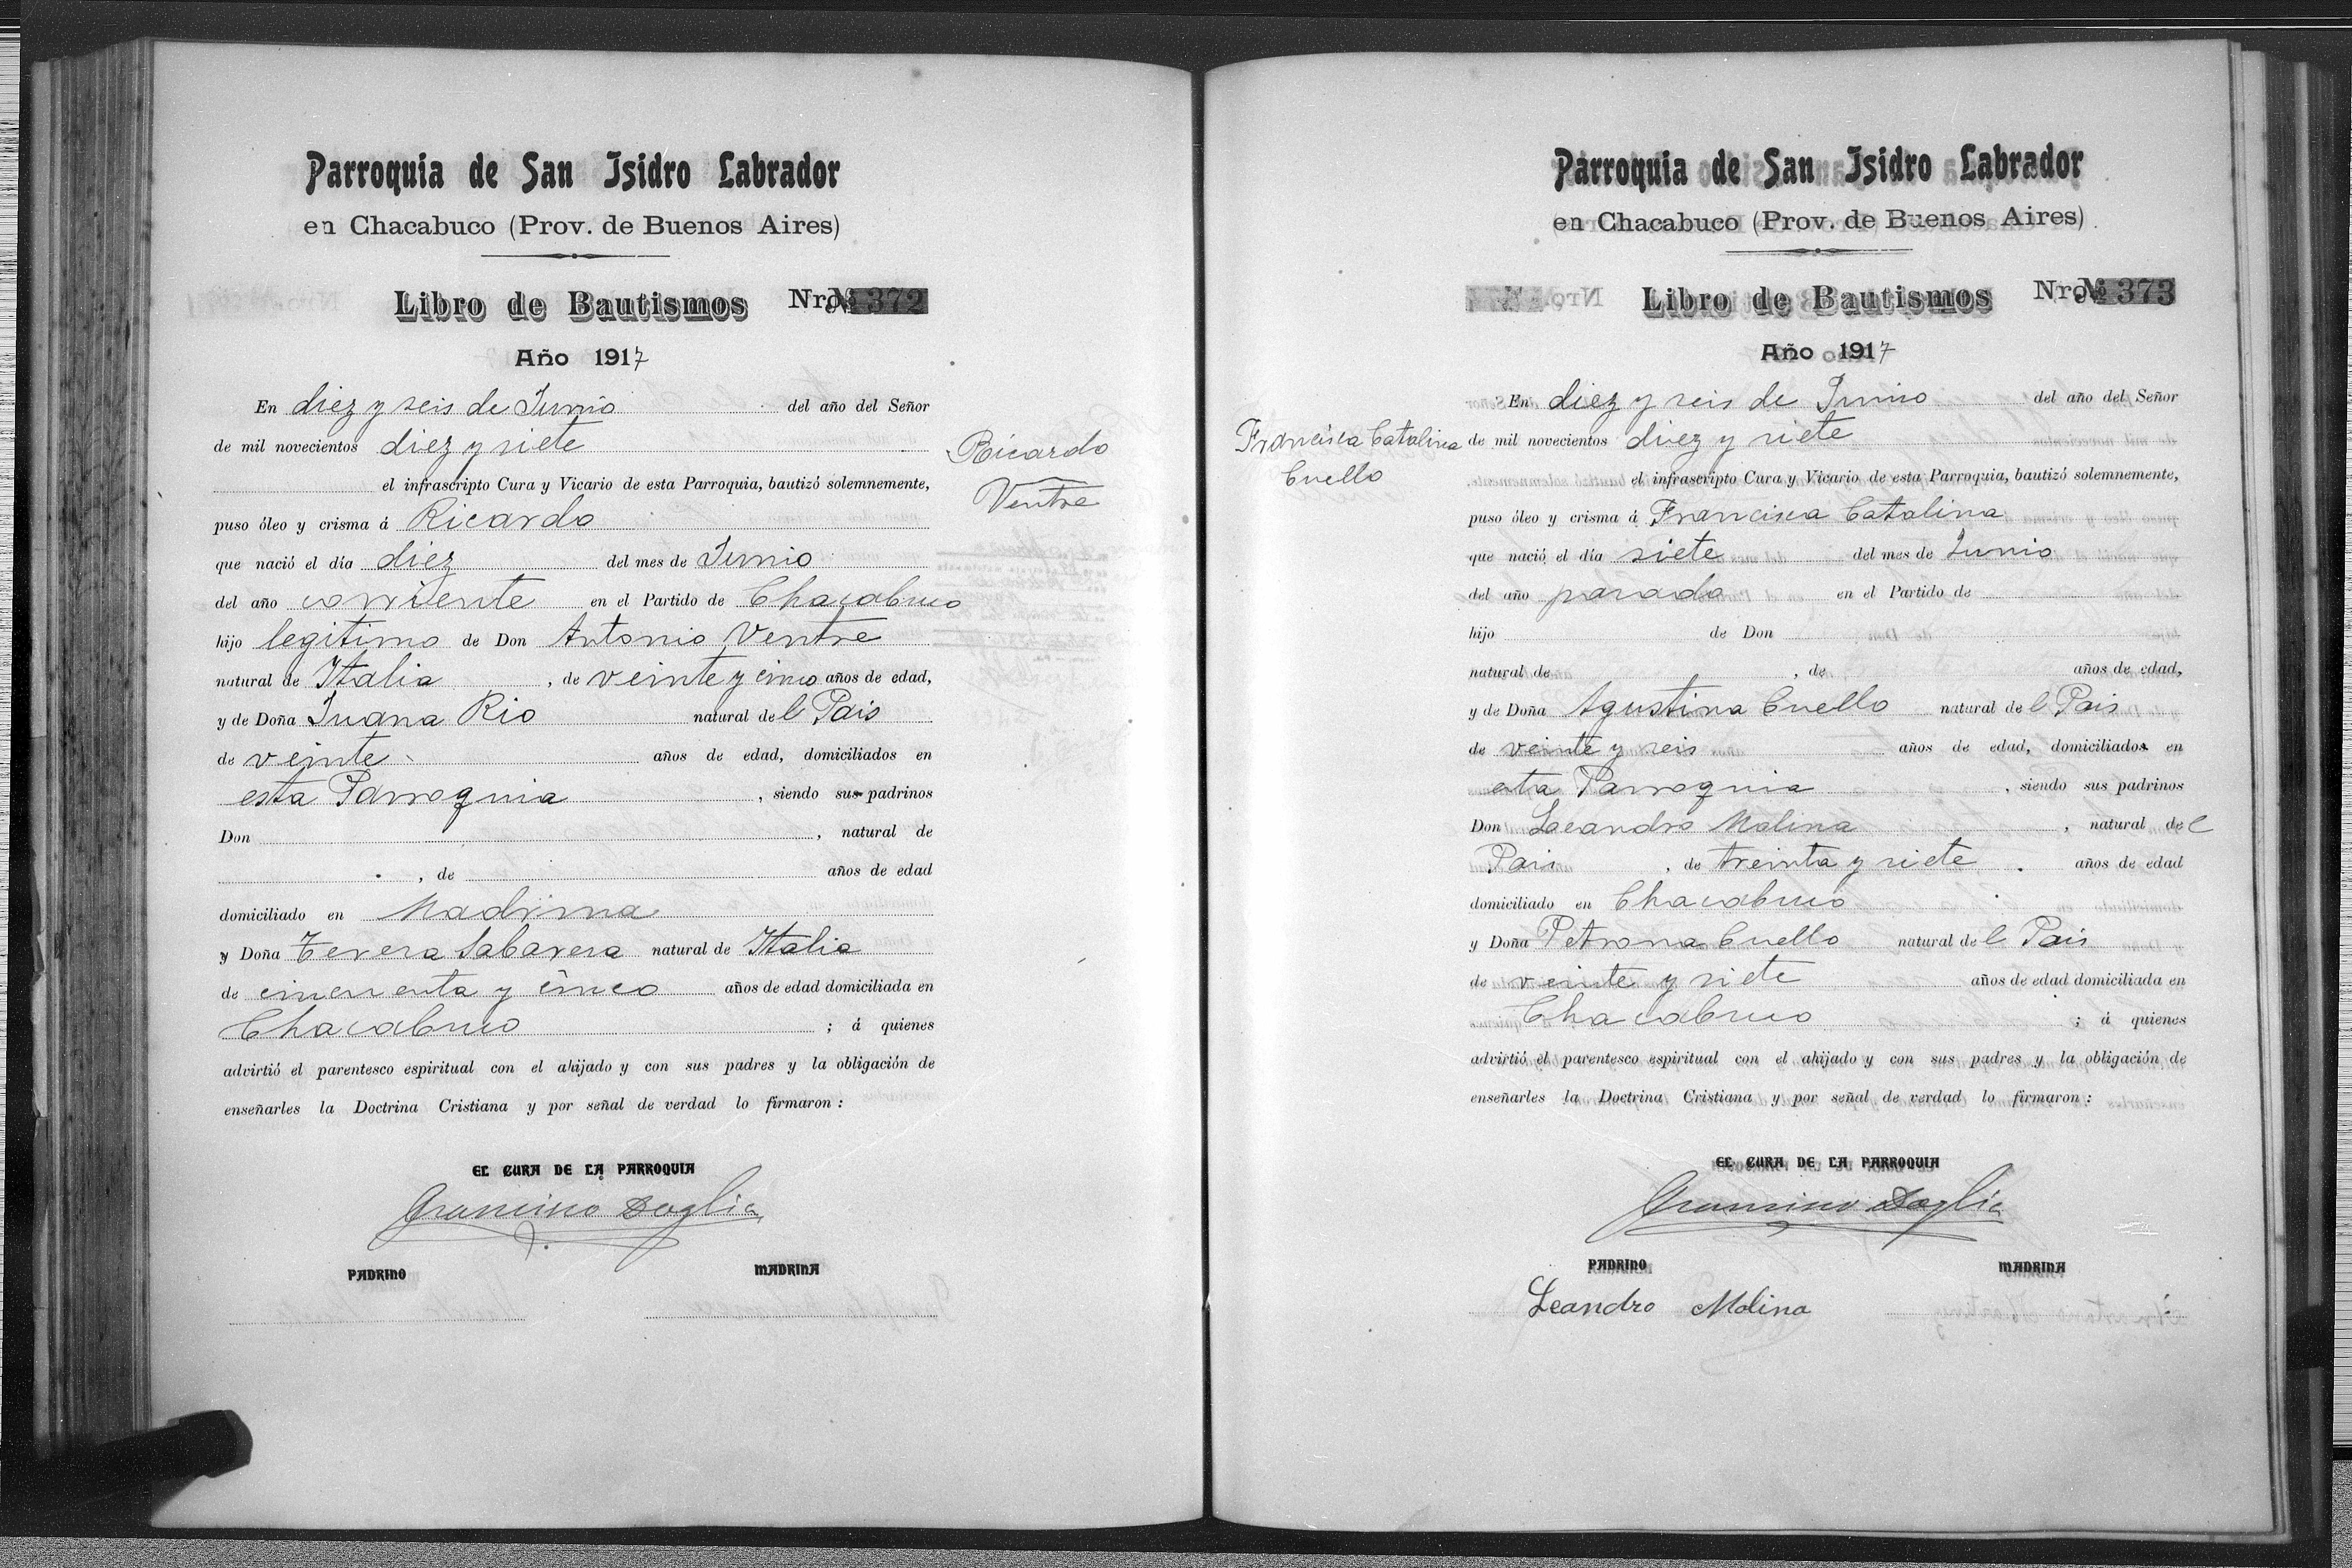 Parroquia de San Isidro Labrador
en Chacabuco (Prov. de Buenos Aires)
Libro de Bautismos Nro. № 372
Año 1917
En diez y seis de Junio del año del Señor
de mil novecientos diez y siete
el infrascripto Cura y Vicario de esta Parroquia, bautizó solemnemente,
puso óleo y crisma á Ricardo
que nació el día diez del mes de Junio
del año corriente en el Partido de Chacabuco
hijo legitimo de Don Antonio Ventre
natural de Italia, de veinte y cinco años de edad,
y de Doña Juana Rio natural del Pais
de veinte años de edad, domiciliados en
esta Parroquia, siendo sus padrinos
Don , natural de
, de años de edad
domiciliado en Madrina
y Doña Teresa Sabaresa natural de Italia
de cincuenta y cinco años de edad domiciliada en
Chacabuco ; á quienes
advirtió el parentesco espiritual con el ahijado y con sus padres y la obligación de
enseñarles la Doctrina Cristiana y por señal de verdad lo firmaron:
EL CURA DE LA PARROQUIA
PADRINO MADRINA
Ricardo
Ventre
Parroquia de San Isidro Labrador
en Chacabuco (Prov. de Buenos Aires)
Libro de Bautismos Nro. № 373
Año 1917
Francisca Catalina
Cuello
En diez y seis de Junio del año del Señor
de mil novecientos diez y siete
el infrascripto Cura y Vicario de esta Parroquia, bautizó solemnemente,
puso óleo y crisma á Francisca Catalina
que nació el día siete del mes de Junio
del año pasado en el Partido de
hijo de Don
natural de , de años de edad,
y de Doña Agustina Cuello natural del Pais
de veinte y seis años de edad, domiciliados en
esta Parroquia, siendo sus padrinos
Don Leandro Molina, natural del
Pais, de treinta y siete años de edad
domiciliado en Chacabuco
y Doña Petrona Cuello natural del Pais
de veinte y siete años de edad domiciliada en
Chacabuco ; á quienes
advirtió el parentesco espiritual con el ahijado y con sus padres y la obligación de
enseñarles la Doctrina Cristiana y por señal de verdad lo firmaron:
EL CURA DE LA PARROQUIA
PADRINO MADRINA
Leandro Molina